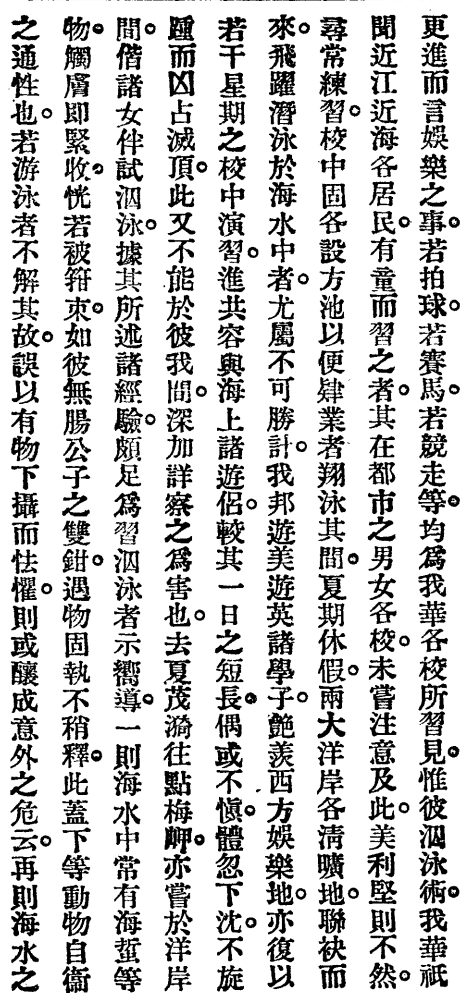 更進而言娛樂之事。若拍球。若賽馬。若競走等。均爲我華各校所習見。惟彼泅泳術。我華祇
聞近江近海各居民。有童而習之者。其在都市之男女各校。未嘗注意及此。美利堅則不然。
尋常練習。校中固各設方池以便肄業者翔泳其間。夏期休假。兩大洋岸各淸曠地。聯袂而
來。飛躍潛泳於海水中者。尤屬不可勝計。我邦遊美遊英諸學子。艶羨西方娛樂地。亦復以
若干星期之校中演習。進共容與海上諸遊侶。較其一日之短長。偶或不愼。體忽下沈。不旋
踵而凶占滅頂。此又不能於彼我間。深加詳察之爲害也。去夏茂漪往點梅岬。亦嘗於洋岸
間。偕諸女伴試泅泳。據其所述諸經驗。頗足爲習泅泳者示嚮導。一則海水中常有海蜇等
物。觸膚卽緊收。恍若被箝束。如彼無腸公子之雙鉗。遇物固執不稍釋。此蓋下等動物自衞
之通性也。若游泳者不解其故。誤以有物下攝而怯懼。則或釀成意外之危云。再則海水之